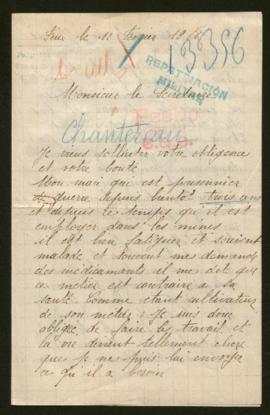 le 18
13356
REPATRIACIÓN
MILITAR
Monsieur le Secrétaire
Chantereau
Je viens solliciter votre obligence
et votre bonté
Mon mari qui est prisonnier
de guerre depuis bientot trois ans
et depuis le temps qu il est
employer dans les mines
il est bien fatiguez et souvent
malade et souvent me demande
des medicaments il me dit que
ce metier est contraire a sa
santé. Comme etant cultivateur
de son metier; Je suis donc
obligée de faire le travail et
la vie devient tellement chere
que je ne puis lui envoyer
ce qu il a besoin